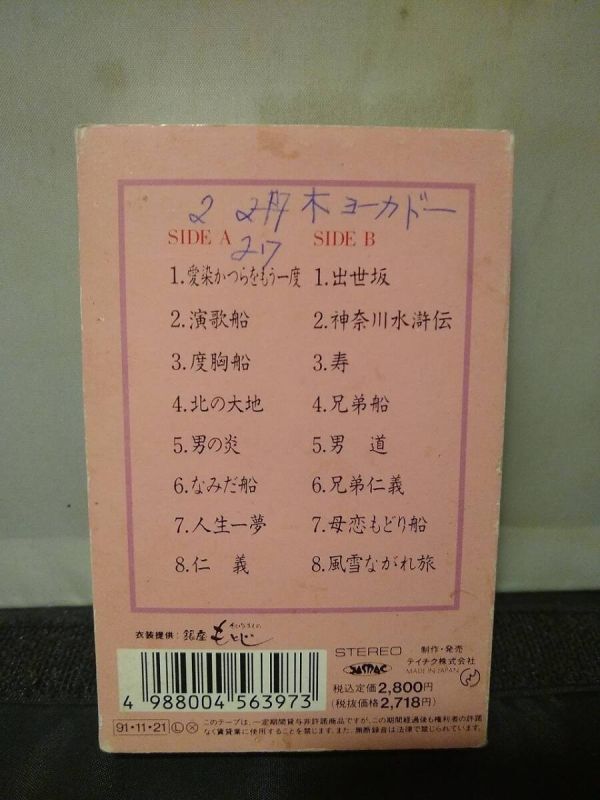 2 2月 木 ヨーカドー
SIDE A
27
SIDE B
1.愛染かつらをもう一度
2.演歌船
3.度胸船
4.北の大地
5.男の炎
6.なみだ船
7.人生一夢
8.仁 義
1.出世坂
2.神奈川水滸伝
3.寿
4.兄弟船
5.男 道
6.兄弟仁義
7.母恋もどり船
8.風雪ながれ旅
衣装提供:銀座 もとじ
STEREO
制作・発売
テイチク株式会社
MADE IN JAPAN
税込定価2,800円
(税抜価格2,718円)
4 988004 563973
91・11・21 Ⓛ Ⓧ
このテープは、一定期間貸与非許諾商品ですが、この期間経過後も権利者の許諾
なく賃貸業に使用することを禁じます。また、無断録音は法律で禁じられています。